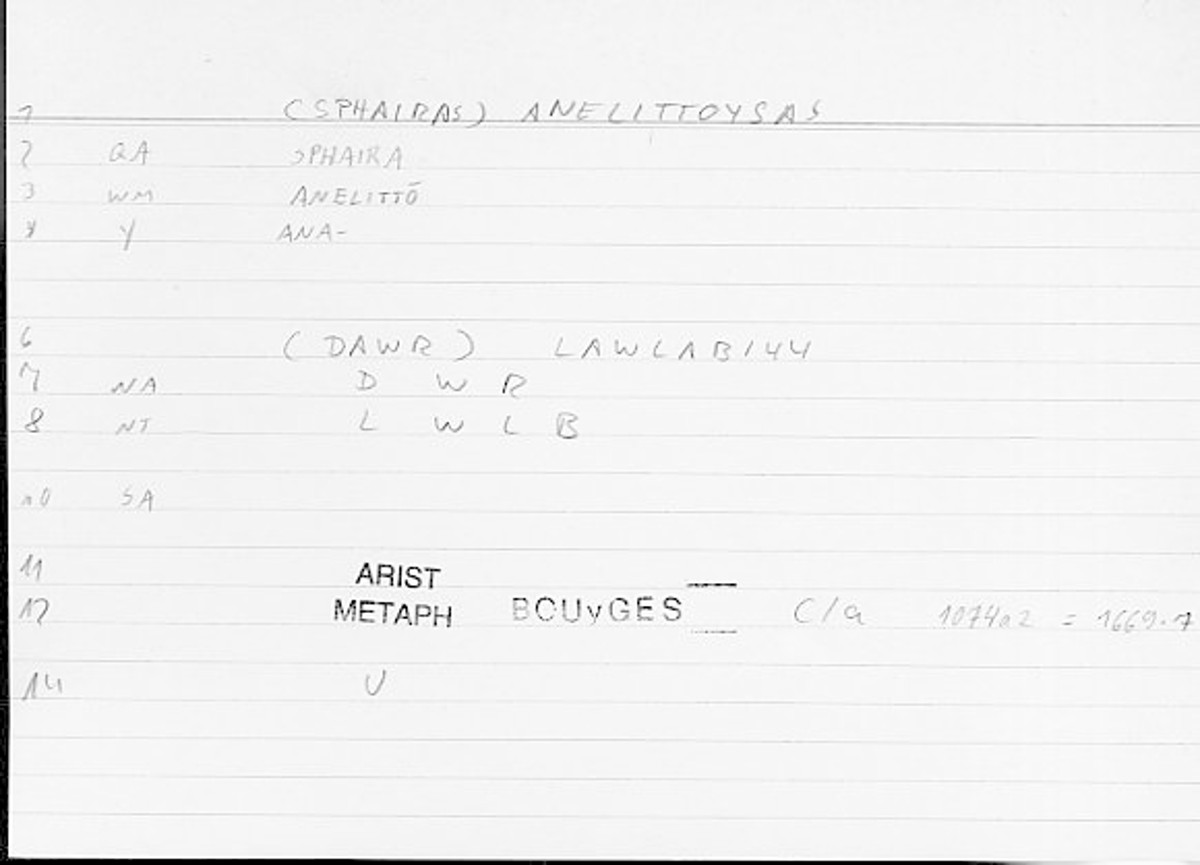 1 (SPHAIRAS) ANELITTOYSAS
2 QA SPHAIRA
3 WM ANELITTŌ
4 Y ANA-
6 (DAWR) LAWLAB144
7 NA D W R
8 NT L W L B
10 SA
11 ARIST
12 METAPH BOUyGES C/a 1074a2 = 1669.7
14 U